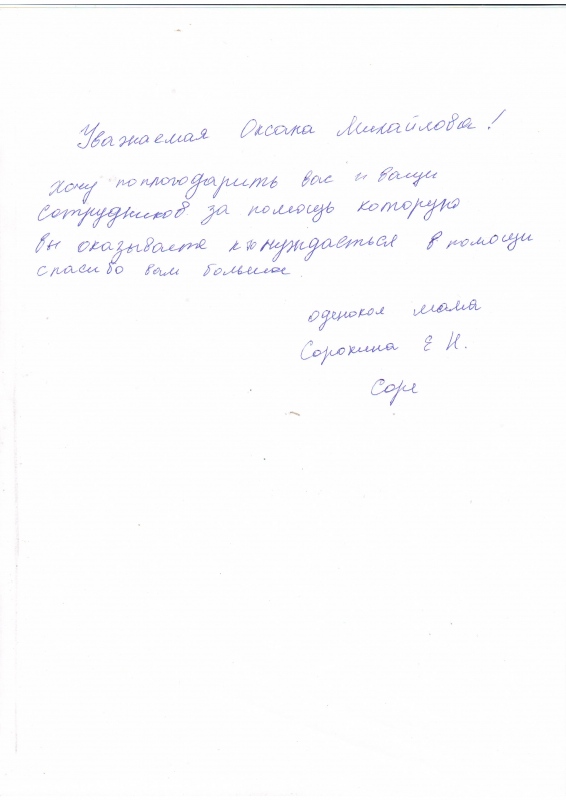 Уважаемая Оксана Михайловна!
Хочу поплогодарить вас и ваши
сотрудников за помощь которую
вы оказываете кто нуждаеться в помощи
спасибо вам большое
одинокая мама
Сорокина Е Н.
Соре